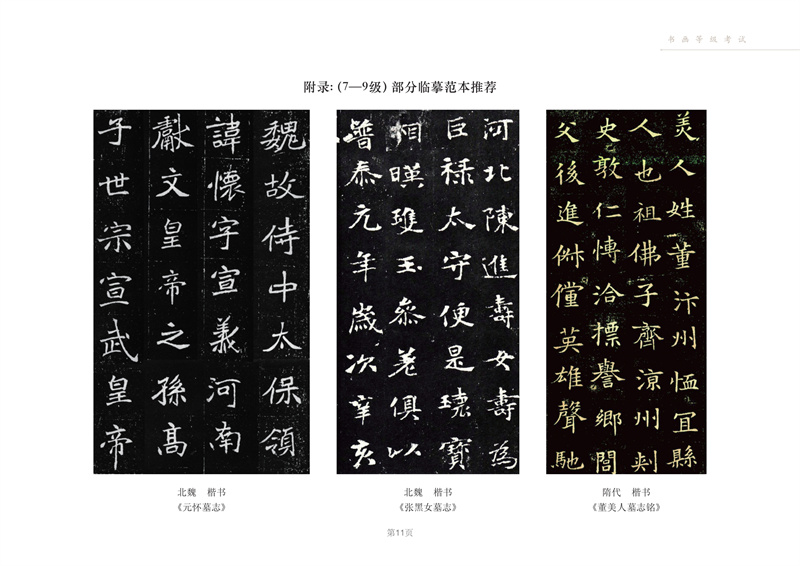 书画等级考试
附录：（7—9级）部分临摹范本推荐
魏故侍中太保領
諱懷字宣義河南
獻文皇帝之孫高
子世宗宣武皇帝
河北陳進壽女壽為
巨禄太守便是瓌寶
相暎瓘玉參差俱以
普泰元年歲次辛亥
美人姓董汴州恤冝縣
人也祖佛子齊涼州刾
史敦仁慱洽摽譽鄉閭
父後進俶儻英雄聲馳
北魏 楷书
《元怀墓志》
北魏 楷书
《张黑女墓志》
隋代 楷书
《董美人墓志铭》
第11页